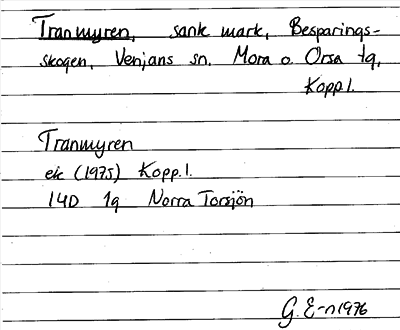 Tranmyren, sank mark, Besparings-
skogen, Venjans sn. Mora o. Orsa tg,
Kopp. l.
Tranmyren
ek (1975) Kopp. l.
14D 1g Norra Torsjön
G. E-n 1976